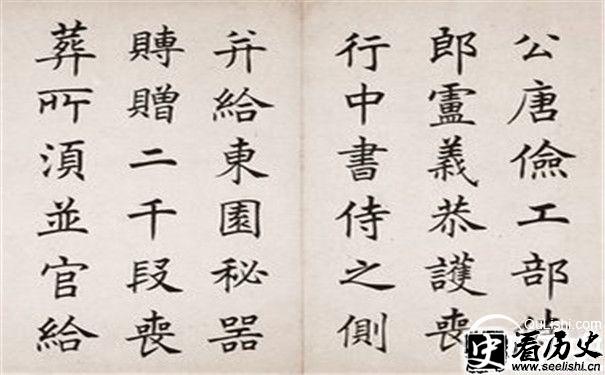 公唐儉工部
郎盧義恭護喪
行中書侍之側
并給東園秘器
賻贈二千段喪
葬所湏並官給
看历史
www.seelishi.cn